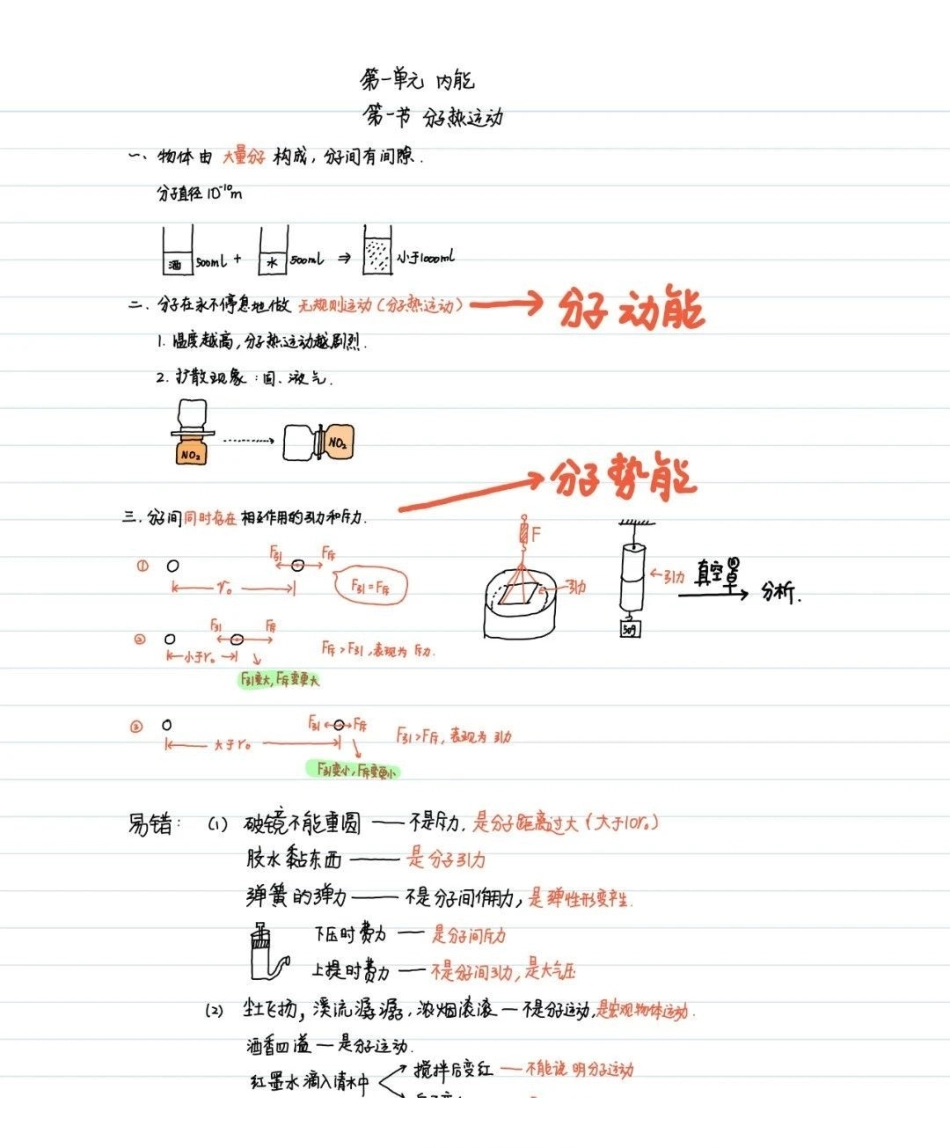 第一单元 内能
第一节 分子热运动
一、物体由 大量分子 构成，分子间有间隙.
分子直径 10⁻¹⁰m
酒 500ml + 水 500ml ⇒ 小于1000ml
二. 分子在永不停息地做 无规则运动（分子热运动）→ 分子动能
1. 温度越高，分子热运动越剧烈.
2. 扩散现象：固、液、气.
NO₂ NO₂
分子势能
三. 分子间同时存在 相互作用的引力和斥力.
① F引 F斥
r₀
F引=F斥
F
引力
←引力
50g
真空罩 → 分析.
② F引 F斥
小于r₀
F斥>F引，表现为 斥力.
F引变大，F斥变更大
③ F引 F斥
大于r₀
F引>F斥，表现为 引力
F引变小，F斥变更小
易错：(1) 破镜不能重圆 —— 不是斥力，是分子距离过大（大于10r₀）
胶水黏东西 —— 是分子引力
弹簧的弹力 —— 不是分子间作用力，是弹性形变产生.
下压时费力 — 是分子间斥力
上提时费力 — 不是分子间引力，是大气压
(2) 尘土飞扬，溪流潺潺，浓烟滚滚 — 不是分子运动，是宏观物体运动.
酒香四溢 — 是分子运动.
红墨水滴入清水中 搅拌后变红 — 不能说明分子运动